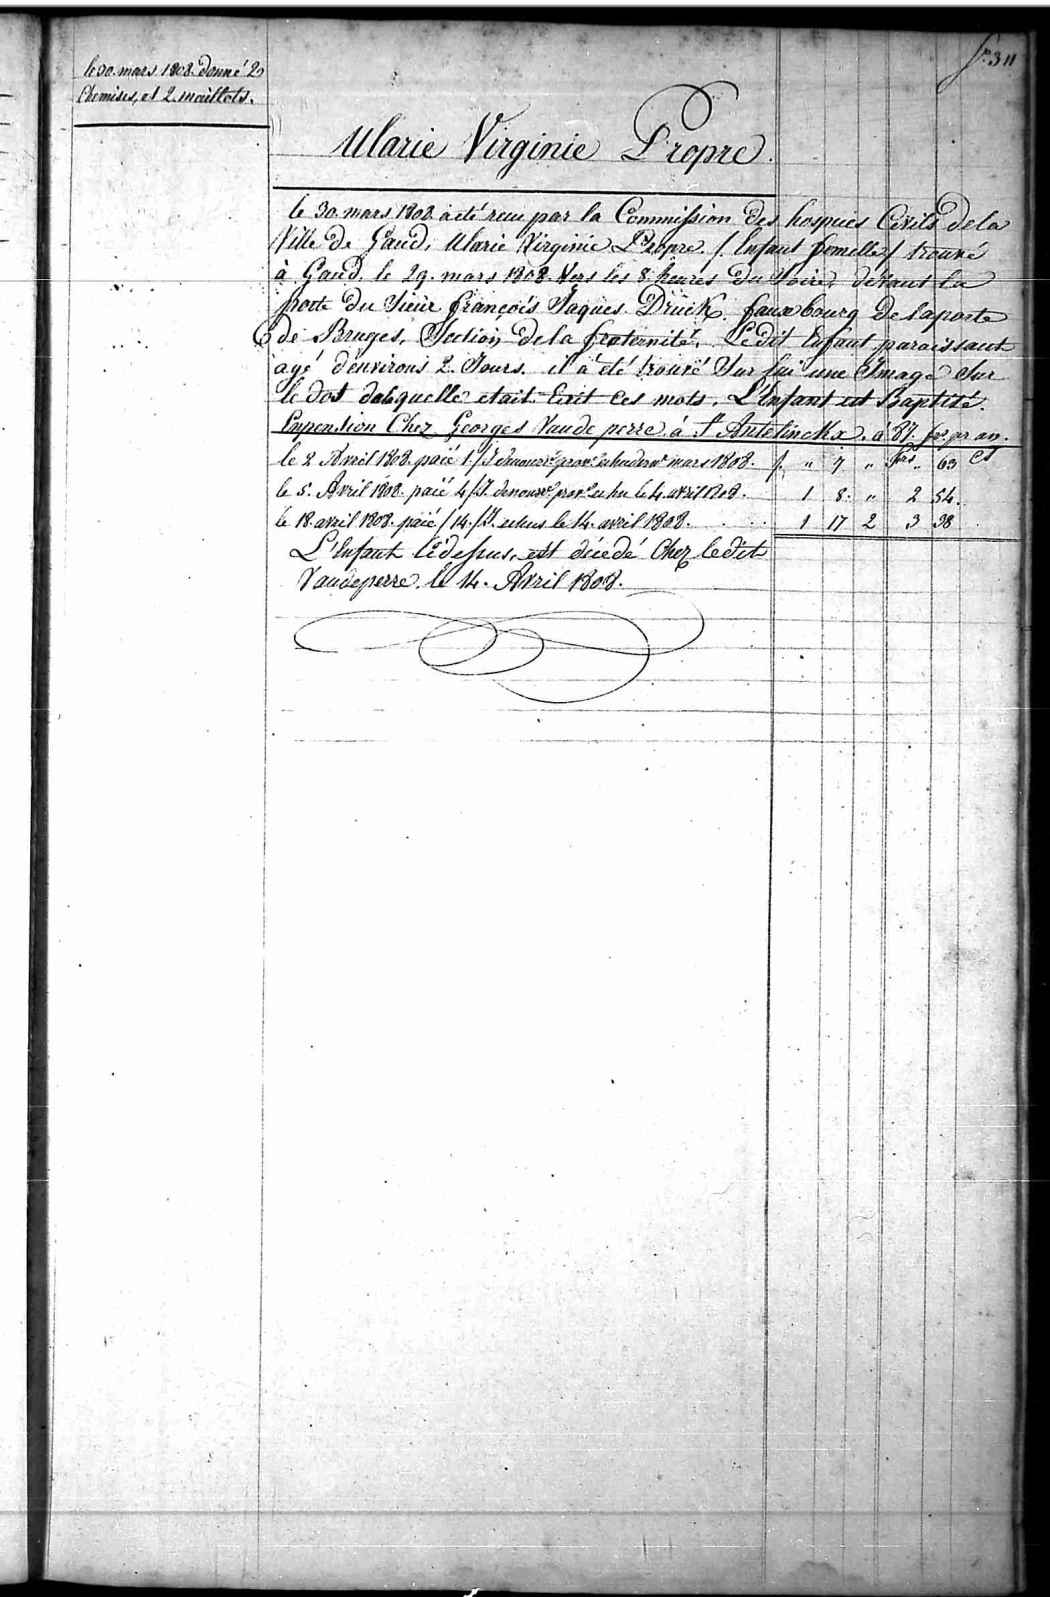 fo. 311
le 30. mars 1808. donné 2
Chemises, et 2. maillots.
Marie Virginie Propre.
le 30. mars 1808 a été recu par la Commission des hospices Civils de la
Ville de Gand, Marie Virginie Propre. /. Enfant femelle / trouvé
à Gand, le 29. mars 1808. Vers les 8. heures du Soire, devant la
porte du Sieur françois Jaques Druck. fauxbourg de la porte
de Bruges, Section de la fraternité. Ledit Enfant paraissant
agé d'environs 2. Jours. il a été trouvé Sur lui une Image Sur
le dos de laquelle etait Ecrit Ces mots. L'Enfant est Baptisé.
Enpension Chez Georges Vande perre à St Antelinckx. à 87. fs. pr an.
le 2 Avril 1808. paié 1 /J. mars 1808. f. " 7 " frs " 63 cs
le 5. Avril 1808. paié 4 /J. le 4. avril 1808. 1 8. " 2 54.
le 18. avril 1808. paié / 14. /J. echus le 14. avril 1808. 1 17 2 3 38
L'Enfant cidessus, est décédé Chez le dit
Vandeperre. le 14. Avril 1808.